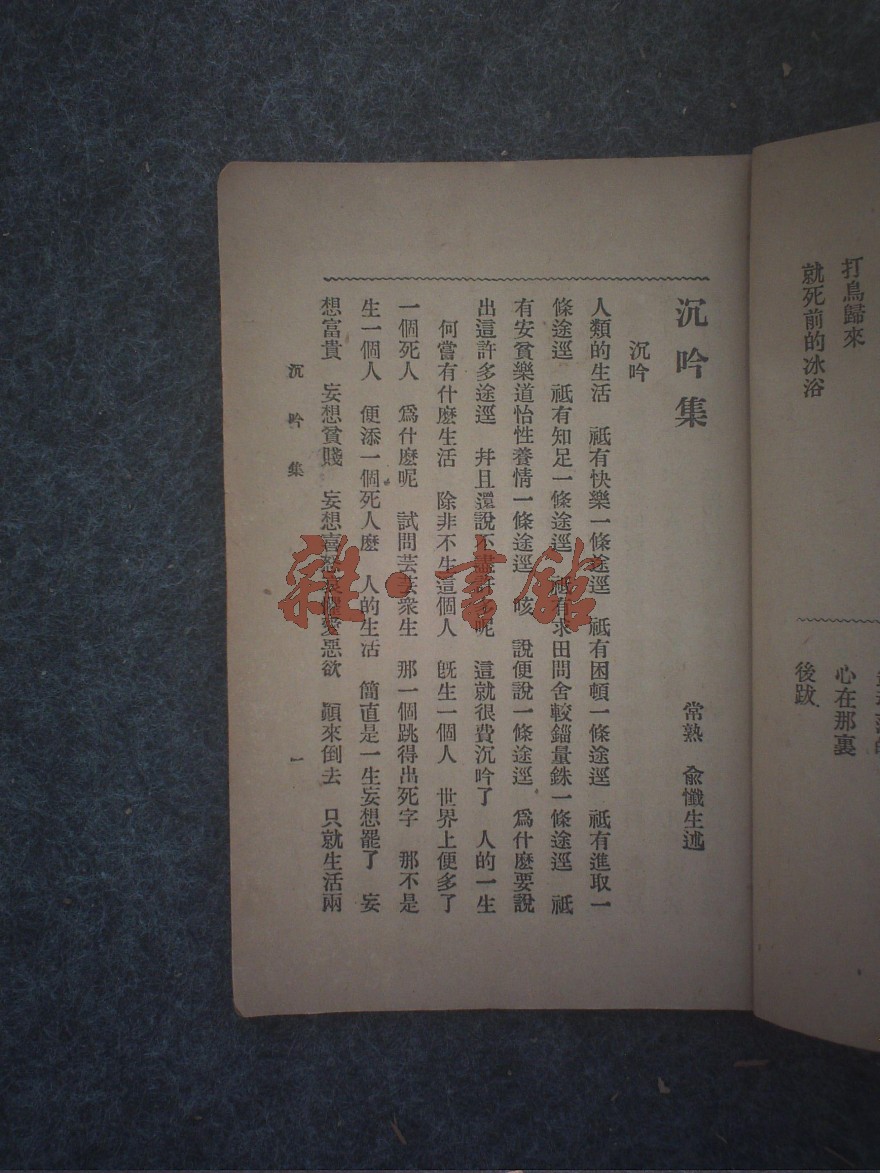 打鳥歸來
就死前的冰浴
心在那裏
後跋
沉吟集
常熟　俞懺生述
沉吟
人類的生活　祇有快樂一條途逕　祇有困頓一條途逕　祇有進取一
條途逕　祇有知足一條途逕　祇有求田問舍較錙量銖一條途逕　祇
有安貧樂道怡性養情一條途逕　咳　說便說一條途逕　爲什麼要說
出這許多途逕　幷且還說不盡許多呢　這就很費沉吟了　人的一生
何嘗有什麼生活　除非不生這個人　旣生一個人　世界上便多了
一個死人　爲什麼呢　試問芸芸衆生　那一個跳得出死字　那不是
生一個人　便添一個死人麼　人的生活　簡直是一生妄想罷了　妄
想富貴　妄想貧賤　妄想喜怒哀懼愛惡欲　顚來倒去　只就生活兩
沉吟集
一
雜·書館